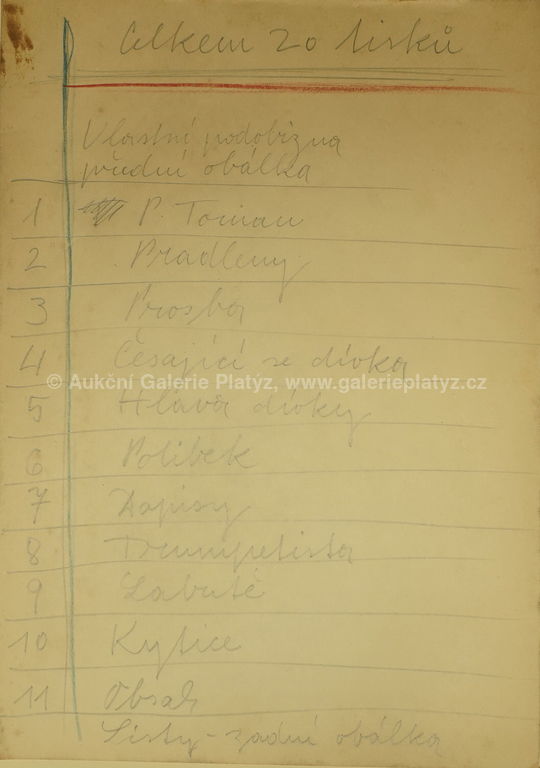 Celkem 20 tisků
Vlastní podobizna
přední obálka
1 P. Toman
2 Pradleny
3 Prosba
4 Česající se dívka
© Aukční Galerie Platýz, www.galerieplatyz.cz
5 Hlava dívky
6 Polibek
7 Dopisy
8 Trumpetista
9 Labutě
10 Kytice
11 Obsah
Listy - zadní obálka